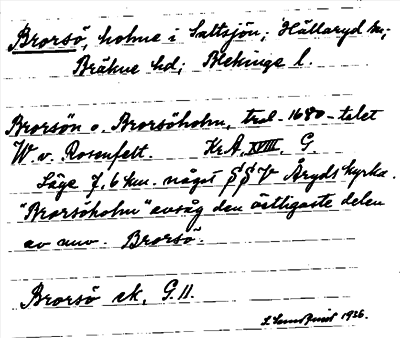 Brorsö, holme i Saltsjön; Hällaryd sn;
Bräkne hd; Blekinge l.
Brorsön o. Brorsöholm, trol. 1680-talet
W. v. Rosenfelt. KrA, XVIII, G.
Läge 7,6 km. något SSV Åryds kyrka.
"Brorsöholm" avsåg den östligaste delen
av nuv. Brorsö.
Brorsö ek, G. 11.
1926.